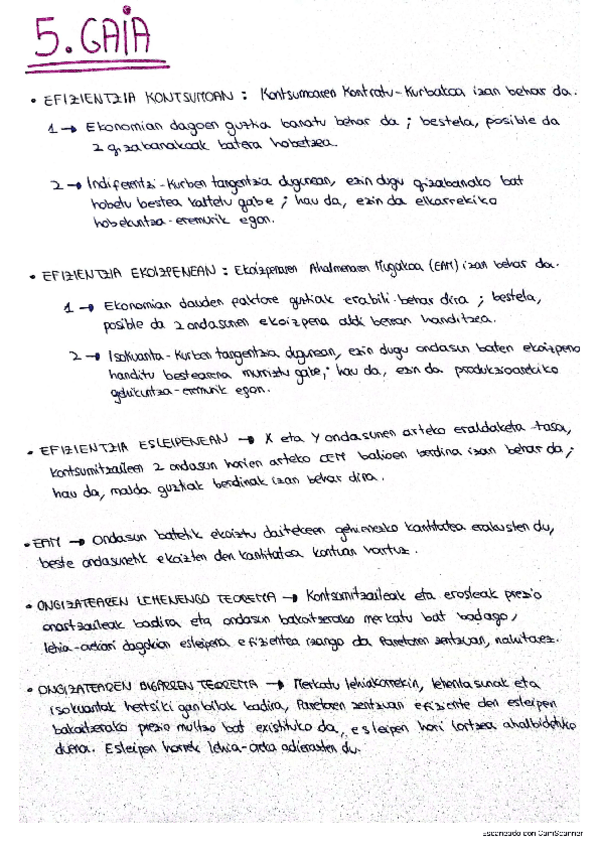 5. GAIA
• EFIZIENTZIA KONTSUMOAN : Kontsumoaren Kontratu-Kurbakoa izan behar da.
1 → Ekonomian dagoen guztia banatu behar da ; bestela, posible da
2 gizabanakoak batera hobetzea.
2 → Indiferentzi-Kurben tangentzia dugunean, ezin dugu gizabanako bat
hobetu bestea kaltetu gabe ; hau da, ezin da elkarrekiko
hobekuntza-eremurik egon.
• EFIZIENTZIA EKOIZPENEAN : Ekoizpenaren Ahalmenaren Mugakoa (EAM) izan behar da.
1 → Ekonomian dauden faktore guztiak erabili behar dira ; bestela,
posible da 2 ondasunen ekoizpena aldi berean handitzea.
2 → Isokuanta-Kurben tangentzia dugunean, ezin dugu ondasun baten ekoizpena
handitu bestearena murriztu gabe ; hau da, ezin da produkzioarekiko
egon.
• EFIZIENTZIA ESLEIPENEAN → X eta Y ondasunen arteko eraldaketa-tasa,
kontsumitzaileen 2 ondasun horien arteko balioen berdina izan behar da ;
hau da, malda guztiak berdinak izan behar dira.
• EAM → Ondasun batetik ekoiztu daitekeen gehienezko kantitatea erakusten du,
beste ondasunetik ekoizten den kantitatea kontuan hartuz.
• ONGIZATEAREN LEHENENGO TEOREMA → Kontsumitzaileak eta erosleak prezio
onartzaileak badira eta ondasun bakoitzerako merkatu bat badago,
lehia-orekari dagokion esleipena efizientea izango da Paretoren zentzuan, nahitaez.
• ONGIZATEAREN BIGARREN TEOREMA → Merkatu lehiakorrekin, lehentasunak eta
isokuantak hertsiki ganbilak badira, Paretoren zentzuan efiziente den esleipen
bakoitzerako prezio multzo bat existituko da, esleipen hori lortzea ahalbidetuko
duena. Esleipen horrek lehia-oreka adierasten du.
Escaneado con CamScanner